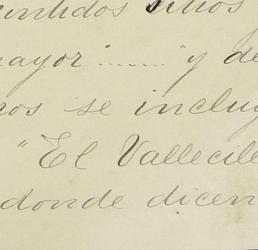 sitios
mayor "......" y de
ros se incluy
"El Vallecil
donde dicen